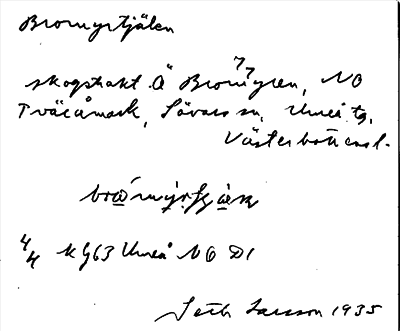 Bromyrtjälen
skogstrakt å Bromyren, NO
Tväråmark, Sävars sn, Umeå tg,
Västerbottens l.
4/4 KG63 Umeå NO D1
Seth Larsson 1935